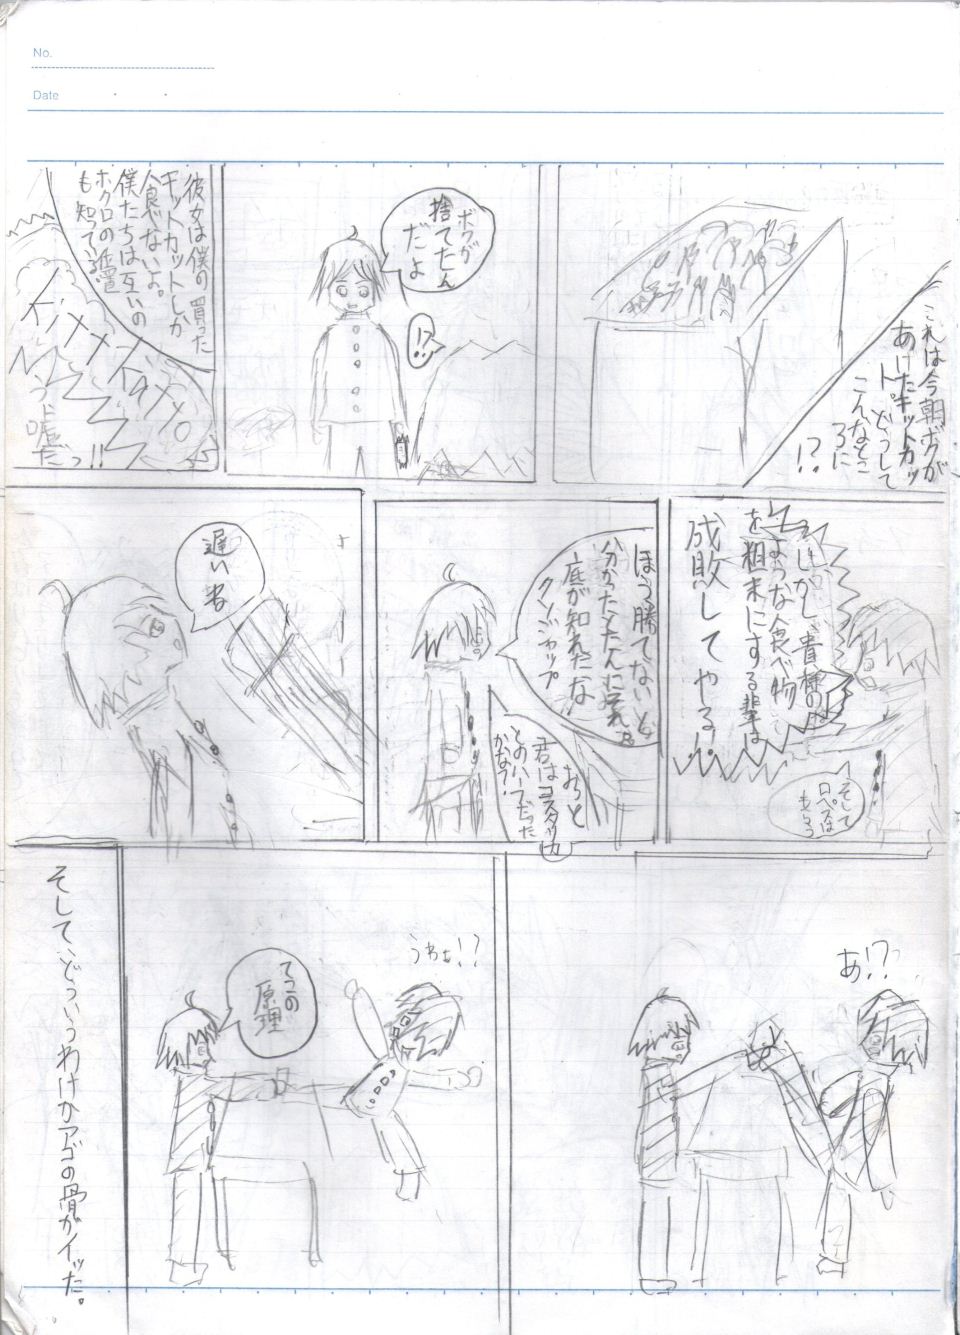 No.
Date
これは今朝ボクが
あけたキットカッ
ト。どうして
こんなとこ
ろに
!?
ボクが
捨てたん
だよ
!?
彼女は僕の買った
キットカットしか
食べないよ。
僕たちは互いの
ホクロの位置
も知ってる。
う
嘘だっ!!
しかし貴様の
ような食べ物
を粗末にする輩は
成敗してやる
そして
ロペスは
もらう
ほう勝てないと
分かったとたんに
底が知れたな
クソジャップ
おっと
君はコスタリカ
とのハーフだった
かな?
遅いね
あ!?
うわぁ!?
てこの
原理
そして、どういうわけかアゴの骨がイッた。